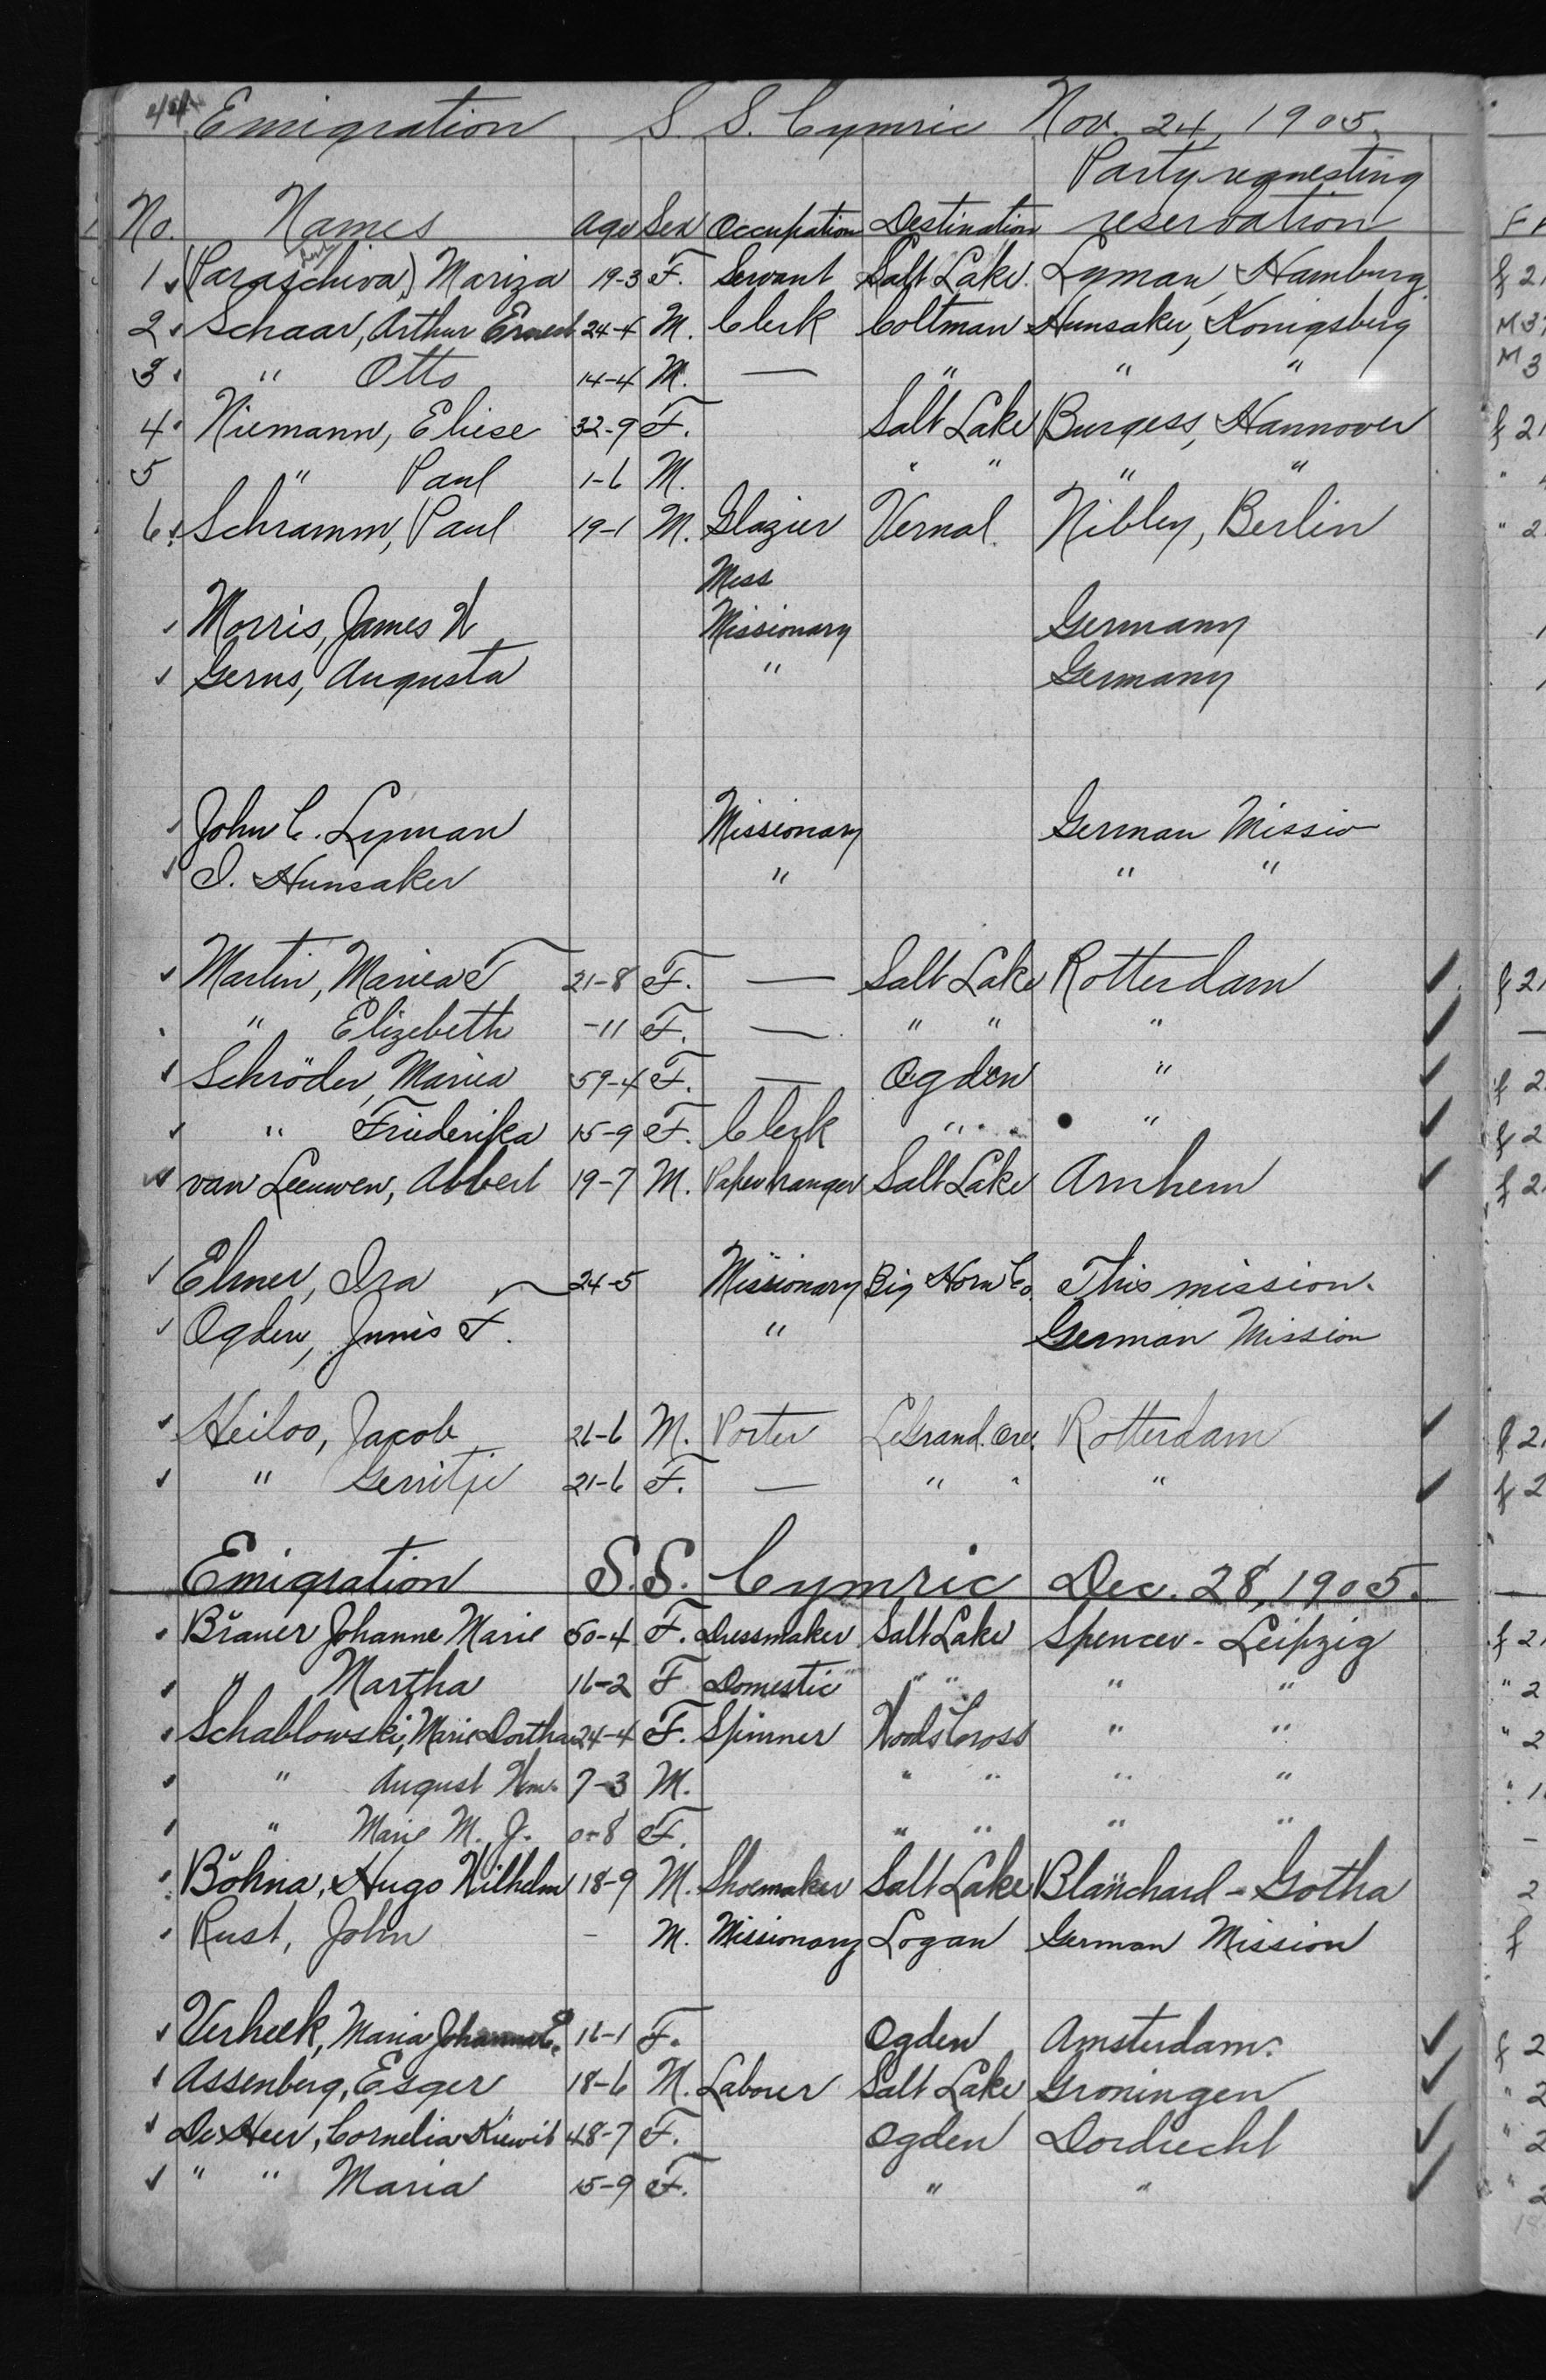 44 Emigration S. S. Cymric Nov. 24, 1905.
Party requesting
No. Names Age Sex Occupation Destination reservation
1 (Paraschiva) Mariza 19-3 F. Servant Salt Lake. Lyman, Hamburg.
2 Schaar, Arthur Ernest 24-4 M. Clerk Coltman Hunsaker, Konigsberg
3 " Otto 14-4 M. — " " "
4 Niemann, Eliese 32-9 F. Salt Lake Burgess, Hannover
5 " Paul 1-6 M. " " " "
6 Schramm, Paul 19-1 M. Glazier Vernal. Nibley, Berlin
Miss
Morris, James W Missionary Germany
Gerns, Augusta " Germany
John C. Lyman Missionary German Missio
I. Hunsaker " " "
Martin, Mariea T 21-8 F. — Salt Lake Rotterdam
" Elizebeth -11 F. — " " "
Schröder, Maria 59-4 F. — Ogden "
" Friederika 15-9 F. Clerk " "
van Leeuwen, Albert 19-7 M. Paperhanger Salt Lake Arnhem
Elmer, Ira 24-5 Missionary Big Horn Co. This mission.
Ogden, Junis F. " German Mission
Heiloo, Jacob 26-6 M. Porter LeGrand. Ore. Rotterdam
" Gerritje 21-6 F. — " " "
Emigration S.S. Cymric Dec. 28, 1905.
Bräuer Johanne Marie 50-4 F. Dressmaker Salt Lake Spencer - Leipzig
" Martha 16-2 F Domestic " " " "
Schablowski, Marie Dortha 24-4 F. Spinner Woods Cross " "
" August Wm. 7-3 M. " " " "
" Marie M. J. 0-8 F. " " " "
Böhna, Hugo Wilhelm 18-9 M. Shoemaker Salt Lake Blanchard - Gotha
Rust, John - M. Missionary Logan German Mission
Verheek, Maria Johanna C. 16-1 F. Ogden Amsterdam.
Assenberg, Esger 18-6 M. Laborer Salt Lake Groningen
De Heer, Cornelia Kiewit 48-7 F. Ogden Dordrecht
" " Maria 15-9 F. " "